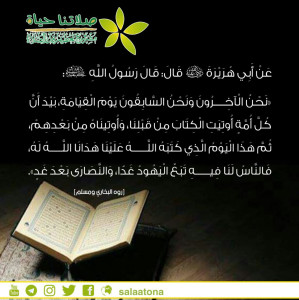 صلاتنا حياة
عَنْ أَبِي هُرَيْرَةَ ﷺ قَالَ: قَالَ رَسُولُ اللَّهِ ﷺ:
«نَحْنُ الْآخِرُونَ وَنَحْنُ السَّابِقُونَ يَوْمَ الْقِيَامَةِ، بَيْدَ أَنَّ
كُلَّ أُمَّةٍ أُوتِيَتِ الْكِتَابَ مِنْ قَبْلِنَا، وَأُوتِينَاهُ مِنْ بَعْدِهِمْ،
ثُمَّ هَذَا الْيَوْمُ الَّذِي كَتَبَهُ اللَّهُ عَلَيْنَا هَدَانَا اللَّهُ لَهُ،
فَالنَّاسُ لَنَا فِيهِ تَبَعٌ الْيَهُودُ غَدًا، وَالنَّصَارَى بَعْدَ غَدٍ».
[رواه البخاري ومسلم]
salaatona